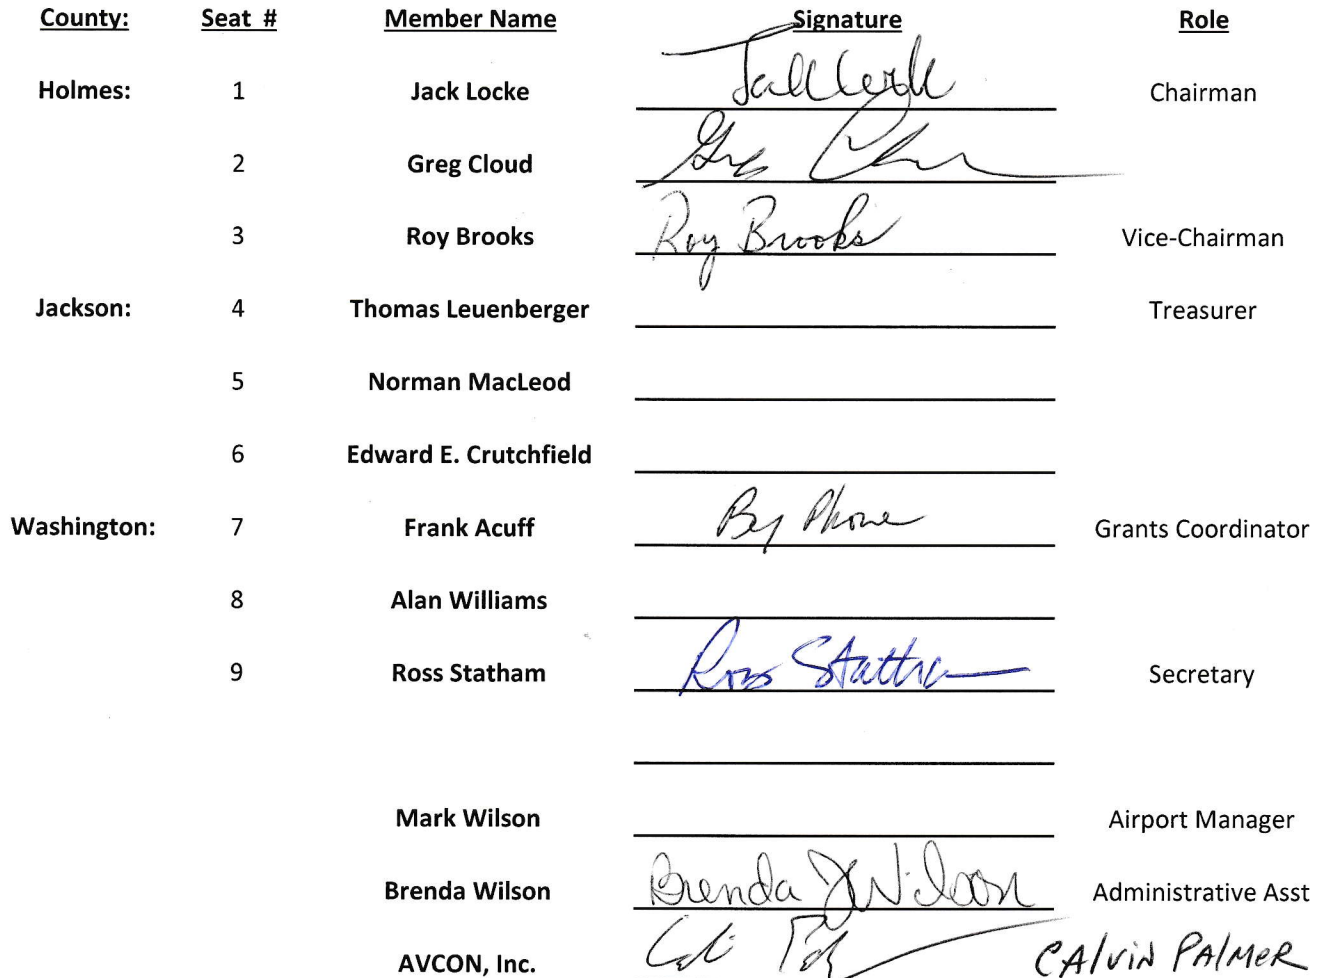 County: Seat # Member Name Signature Role
Holmes: 1 Jack Locke Chairman
2 Greg Cloud Greg
3 Roy Brooks Roy Brooks Vice-Chairman
Jackson: 4 Thomas Leuenberger Treasurer
5 Norman MacLeod
6 Edward E. Crutchfield
Washington: 7 Frank Acuff By Phone Grants Coordinator
8 Alan Williams
9 Ross Statham Ross Statham Secretary
Mark Wilson Airport Manager
Brenda Wilson Brenda J Wilson Administrative Asst
AVCON, Inc. CAlviN PAlMeR